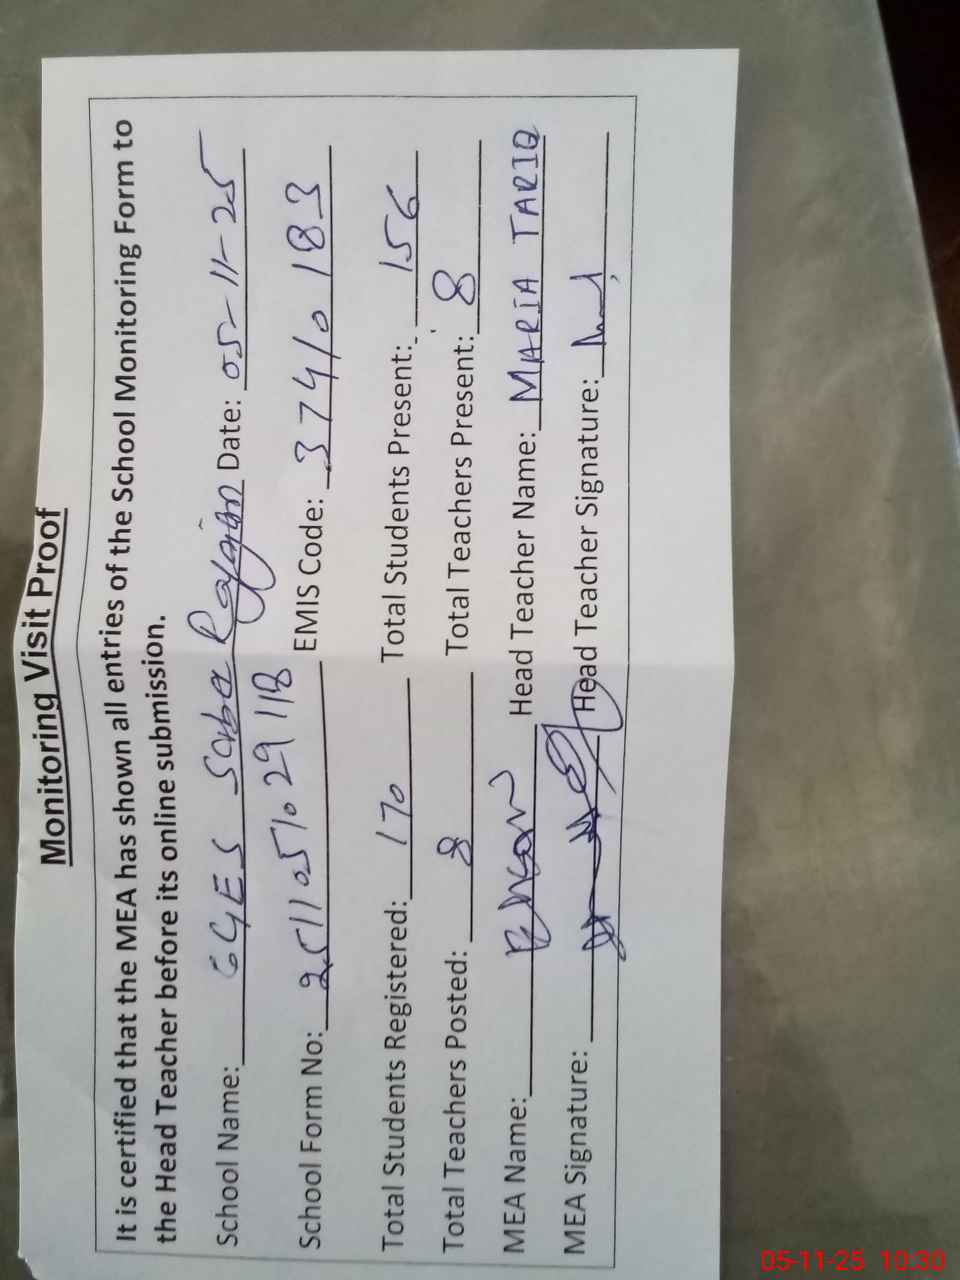 Monitoring Visit Proof
It is certified that the MEA has shown all entries of the School Monitoring Form to
the Head Teacher before its online submission.
School Name: GGES Saba Date: 05-11-25
School Form No: 2511051029118 EMIS Code: 37410183
Total Students Registered: 170 Total Students Present: 156
Total Teachers Posted: 8 Total Teachers Present: 8
MEA Name: Head Teacher Name: MARIA TARIQ
MEA Signature: Head Teacher Signature:
05-11-25 10:30